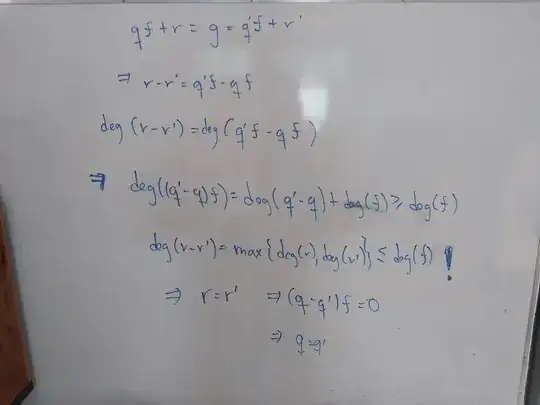 qf+r = g = q'f+r'
⇒ r-r' = q'f-qf
deg (r-r') = deg (q'f-qf)
⇒ deg((q'-q)f) = deg (q'-q) + deg(f) ≥ deg(f)
deg(r-r') = max{deg(r), deg(r')} ≤ deg(f) !
⇒ r=r' ⇒ (q-q')f=0
⇒ q=q'